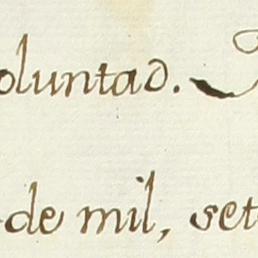 oluntad.
de mil, set